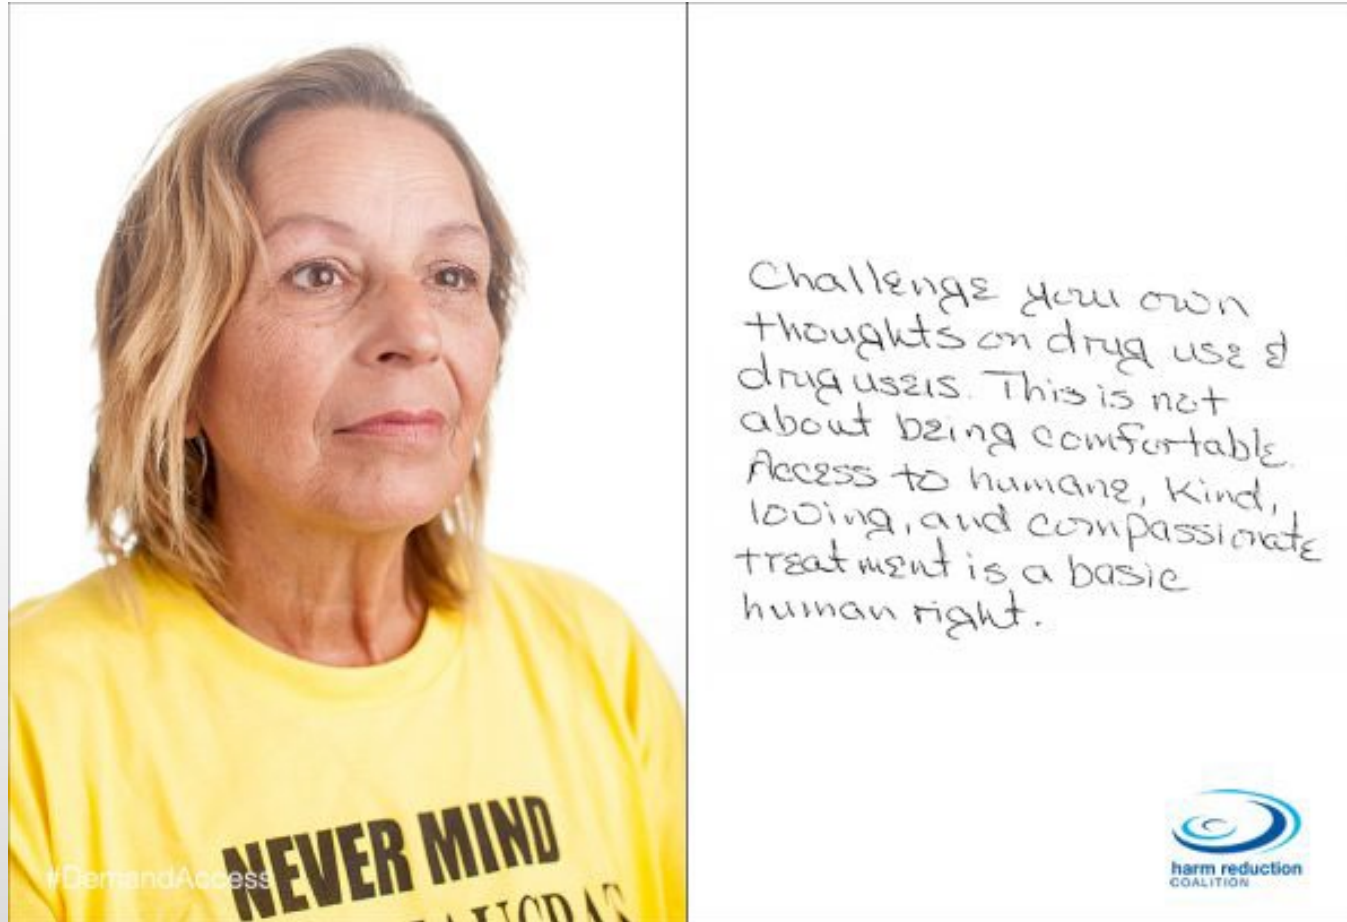 NEVER MIND
#DemandAccess
Challenge your own
thoughts on drug use &
drug users. This is not
about being comfortable.
Access to humane, kind,
loving, and compassionate
treatment is a basic
human right.
harm reduction
COALITION